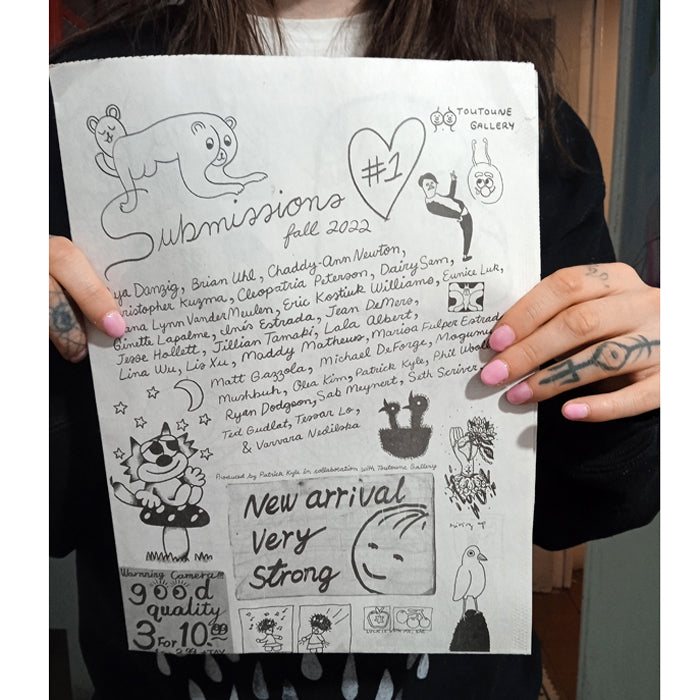 TOUTOUNE
GALLERY
#1
Submissions
fall 2022
ya Danzig, Brian Uhl, Chaddy-Ann Newton,
ristopher Kuzma, Cleopatria Peterson, Dairy Sam,
ana Lynn VanderMeulen, Eric Kostiuk Williams, Eunice Luk,
Ginette Lapalme, Inés Estrada, Jean DeMers,
Jesse Hallett, Jillian Tamaki, Lala Albert,
Lina Wu, Lis Xu, Maddy Mathews, Marisa Fulper Estrad
Matt Gazzola, Michael DeForge, Mogumu
Mushbuh, Olea Kim, Patrick Kyle, Phil Wooll
Ryan Dodgson, Sab Meynert, Seth Scriver,
Ted Gudlat, Tessar Lo,
& Varvara Nedilska
Produced by Patrick Kyle in collaboration with Toutoune Gallery
New arrival
Very
Strong
rising up
Warnning Camera!!!
good
quality
3 For 10.99
+TAX